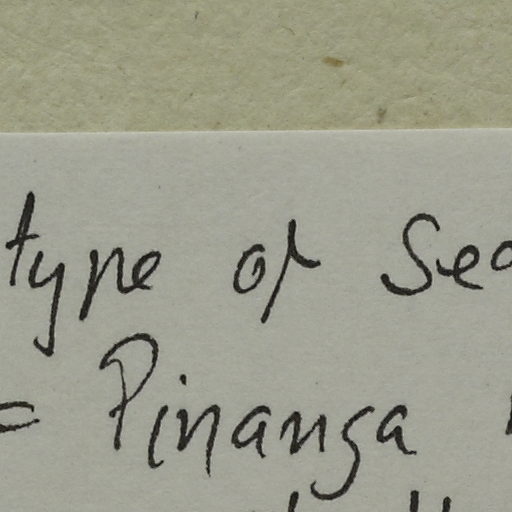 type of Sec
= Pinanga